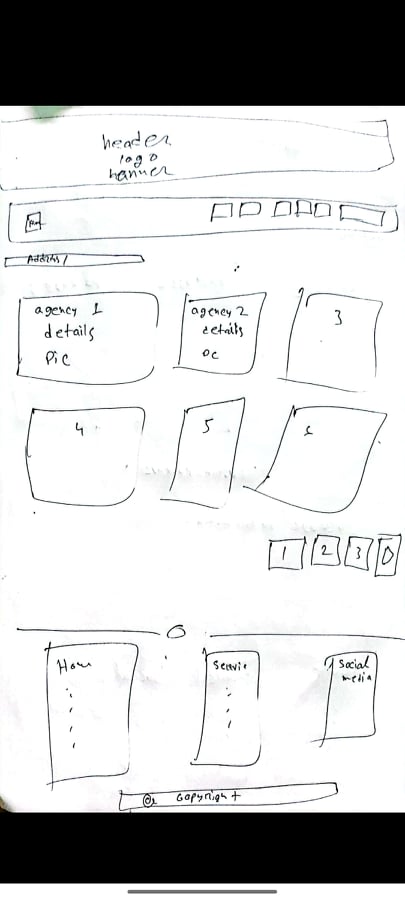 header
logo
banner
Address /
agency 1
details
Pic
agency 2
details
3
4
5
1
2
3
Home
Servic
Social
media
Copyright